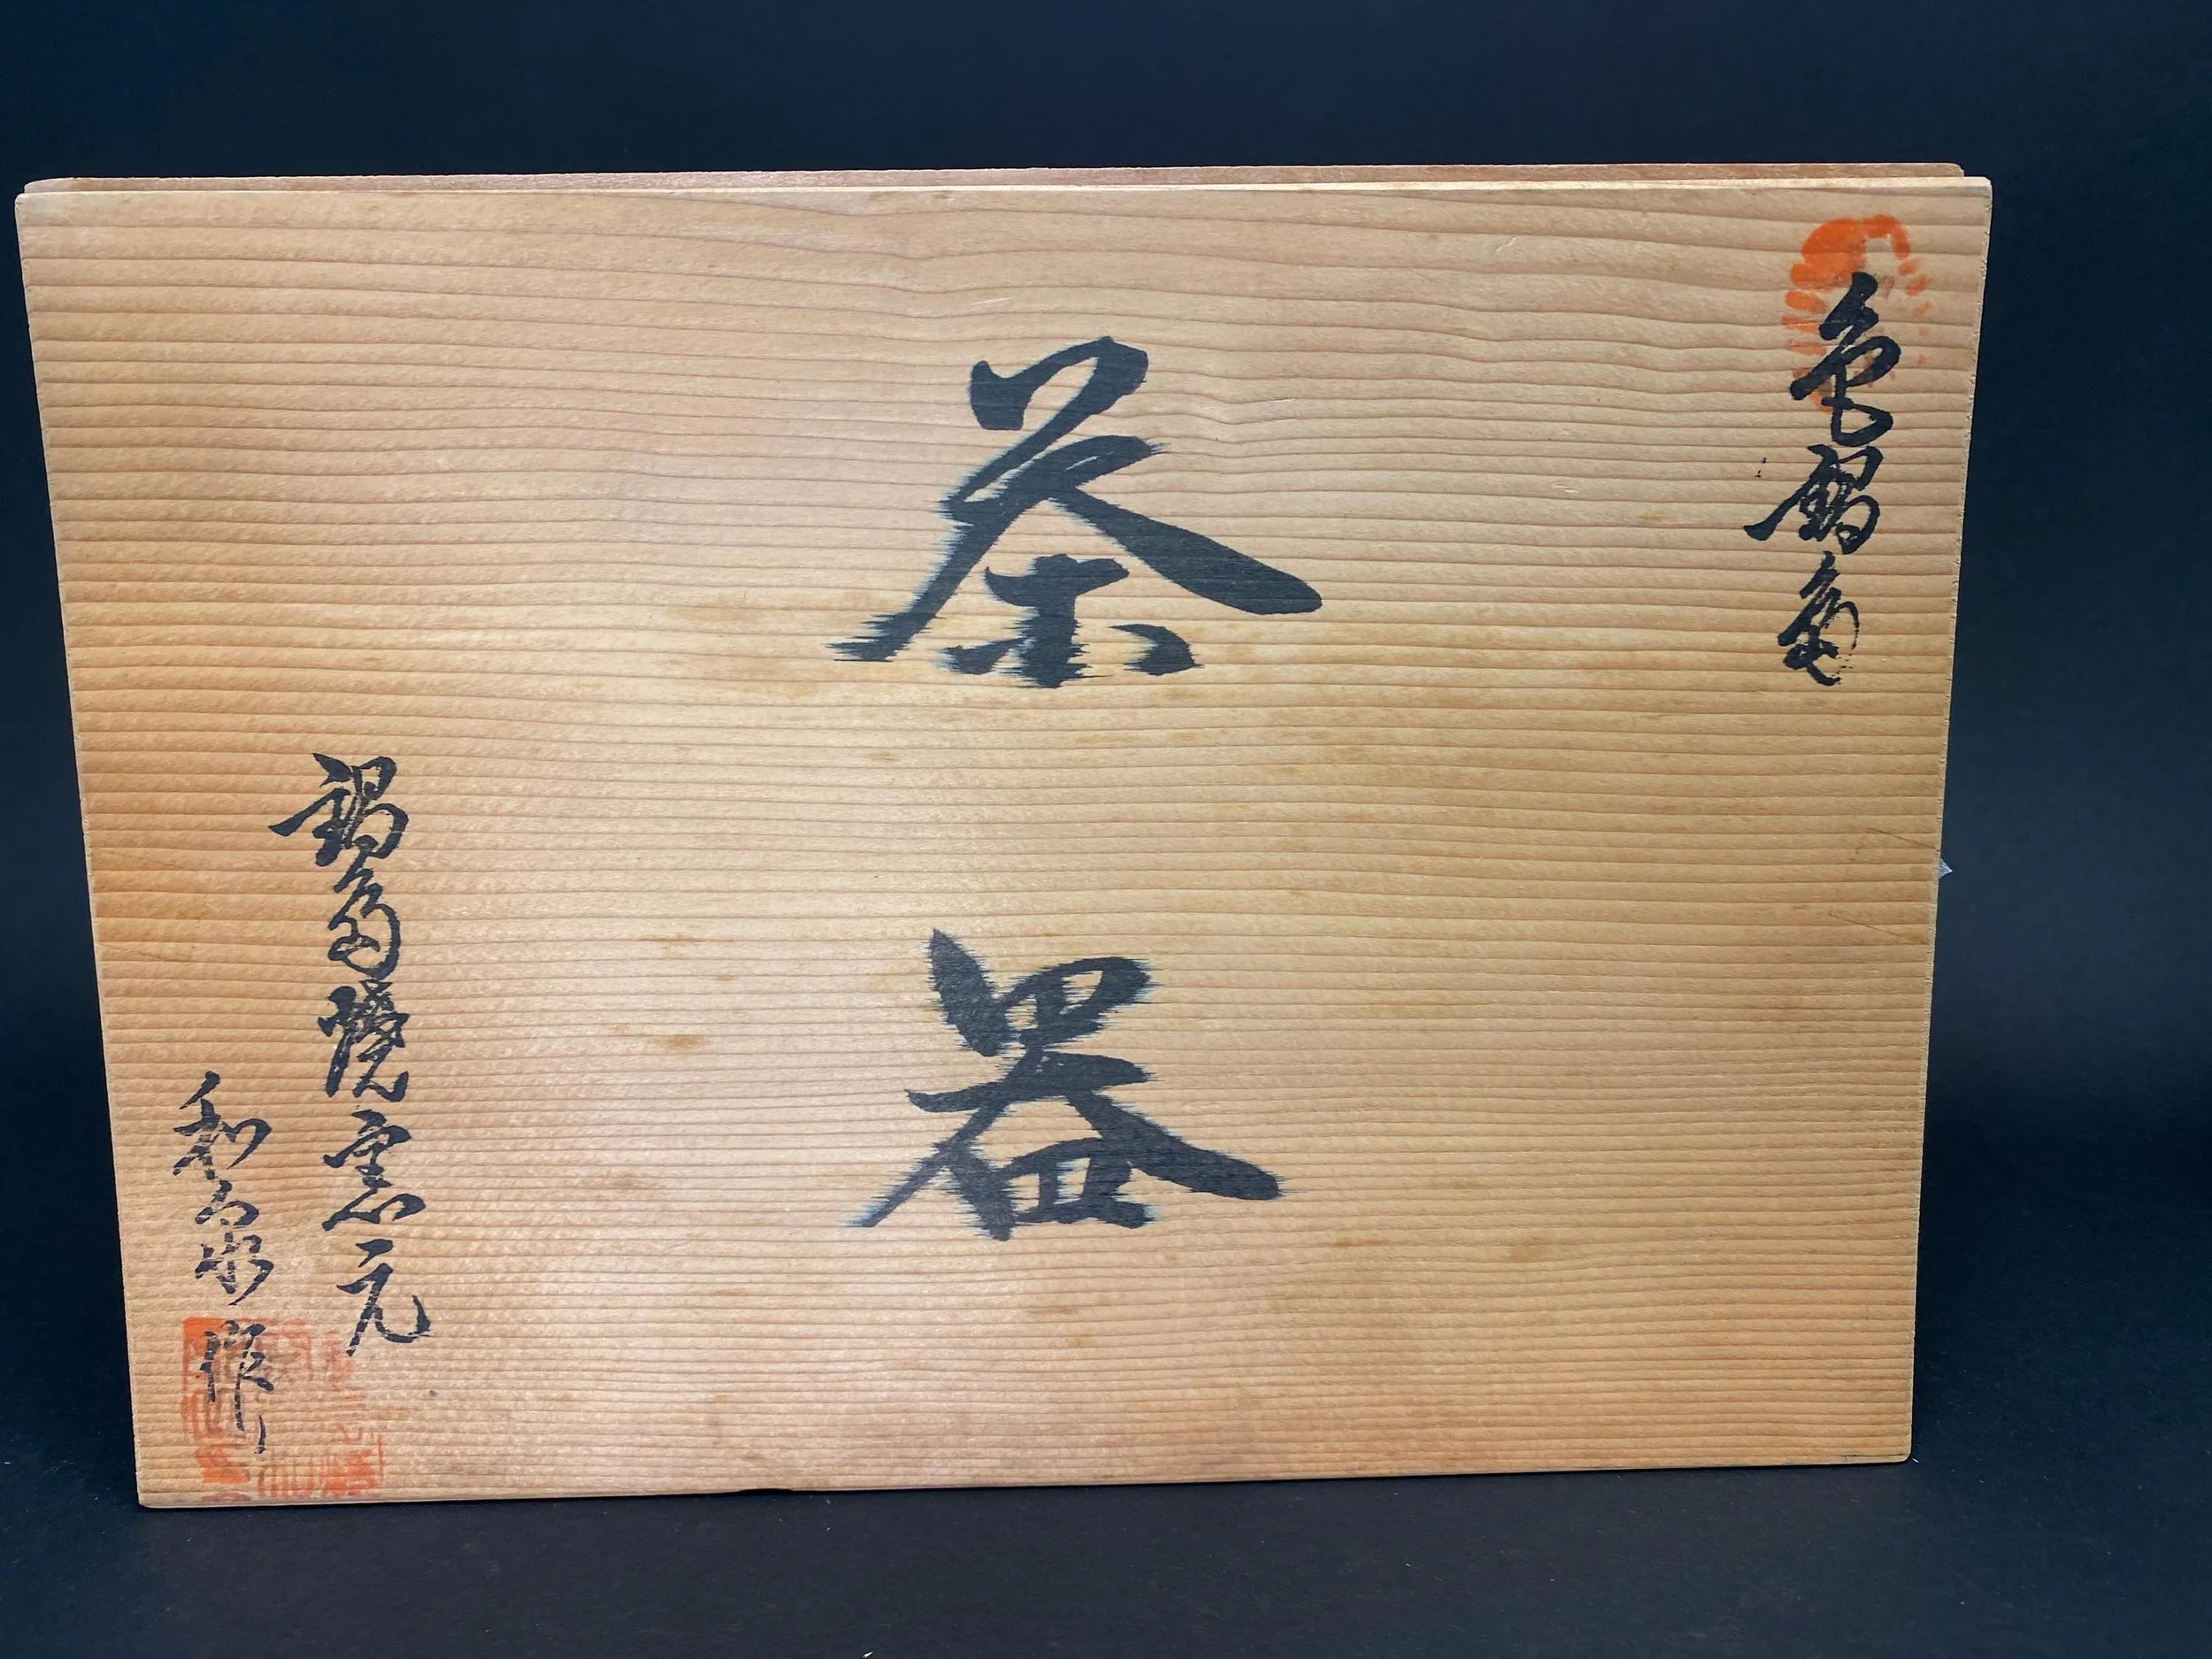 色鍋島
茶器
鍋島焼窯元
和泉作